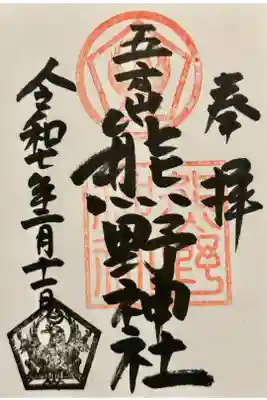 奉拝
五方山熊野神社
令和七年二月十一日